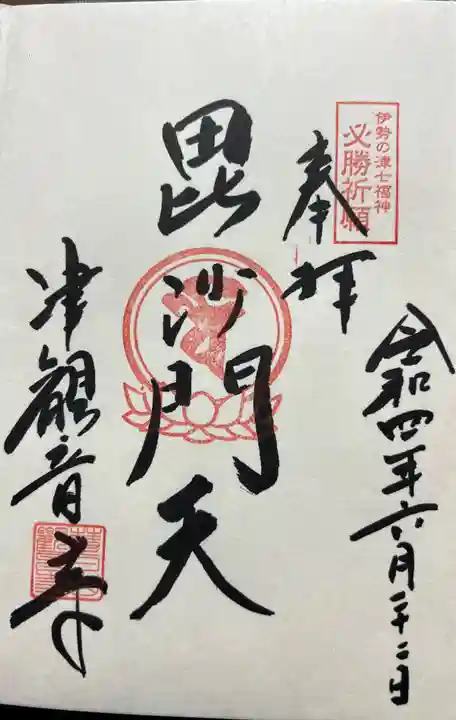 伊勢の津七福神
必勝祈願
奉拝
令和四年六月二十二日
毘沙門天
津観音